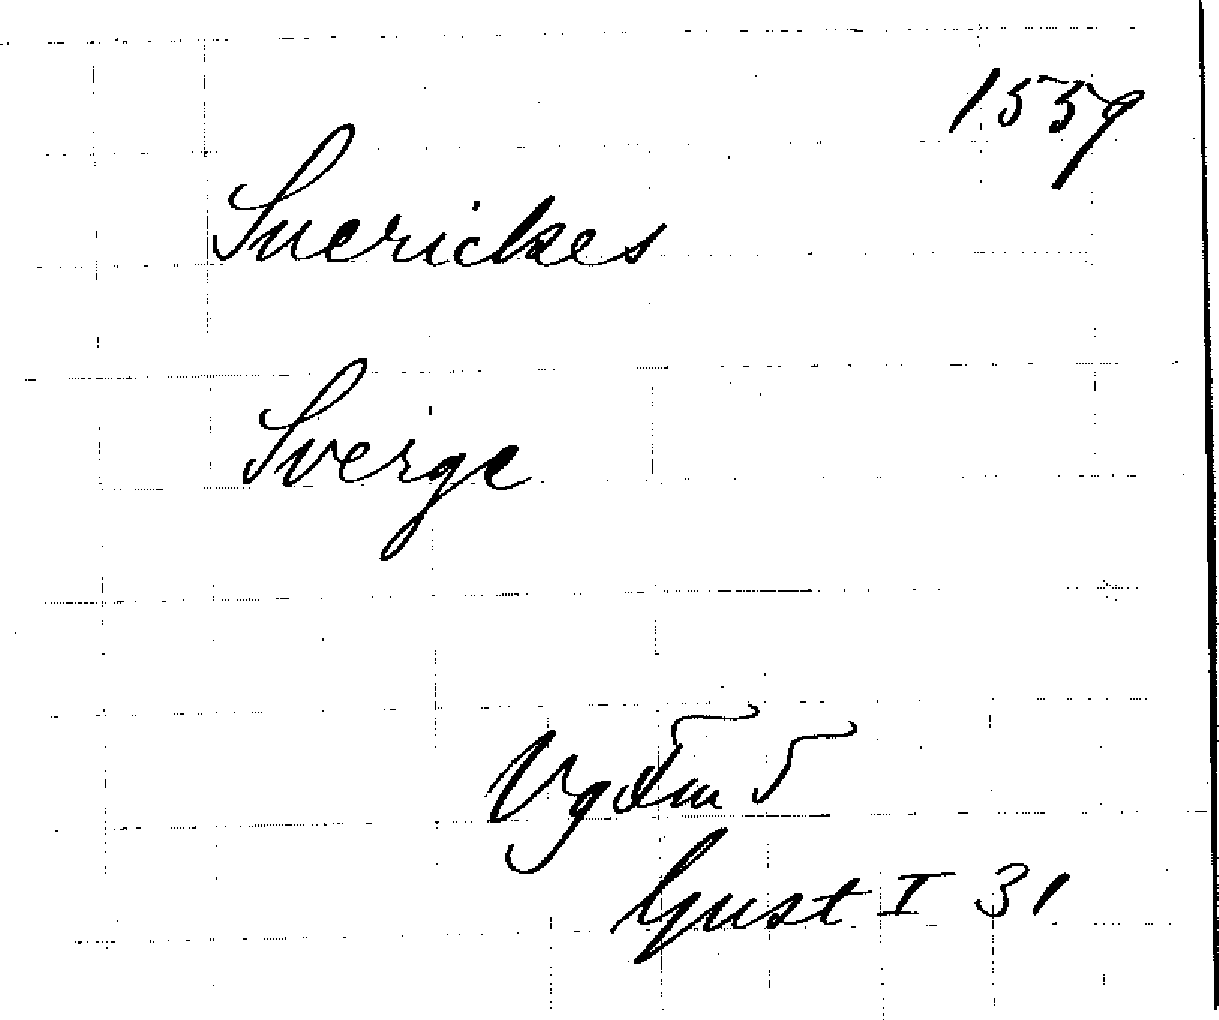 1559
Suerickes
Sverge
Vgdm 5
Gust I 31